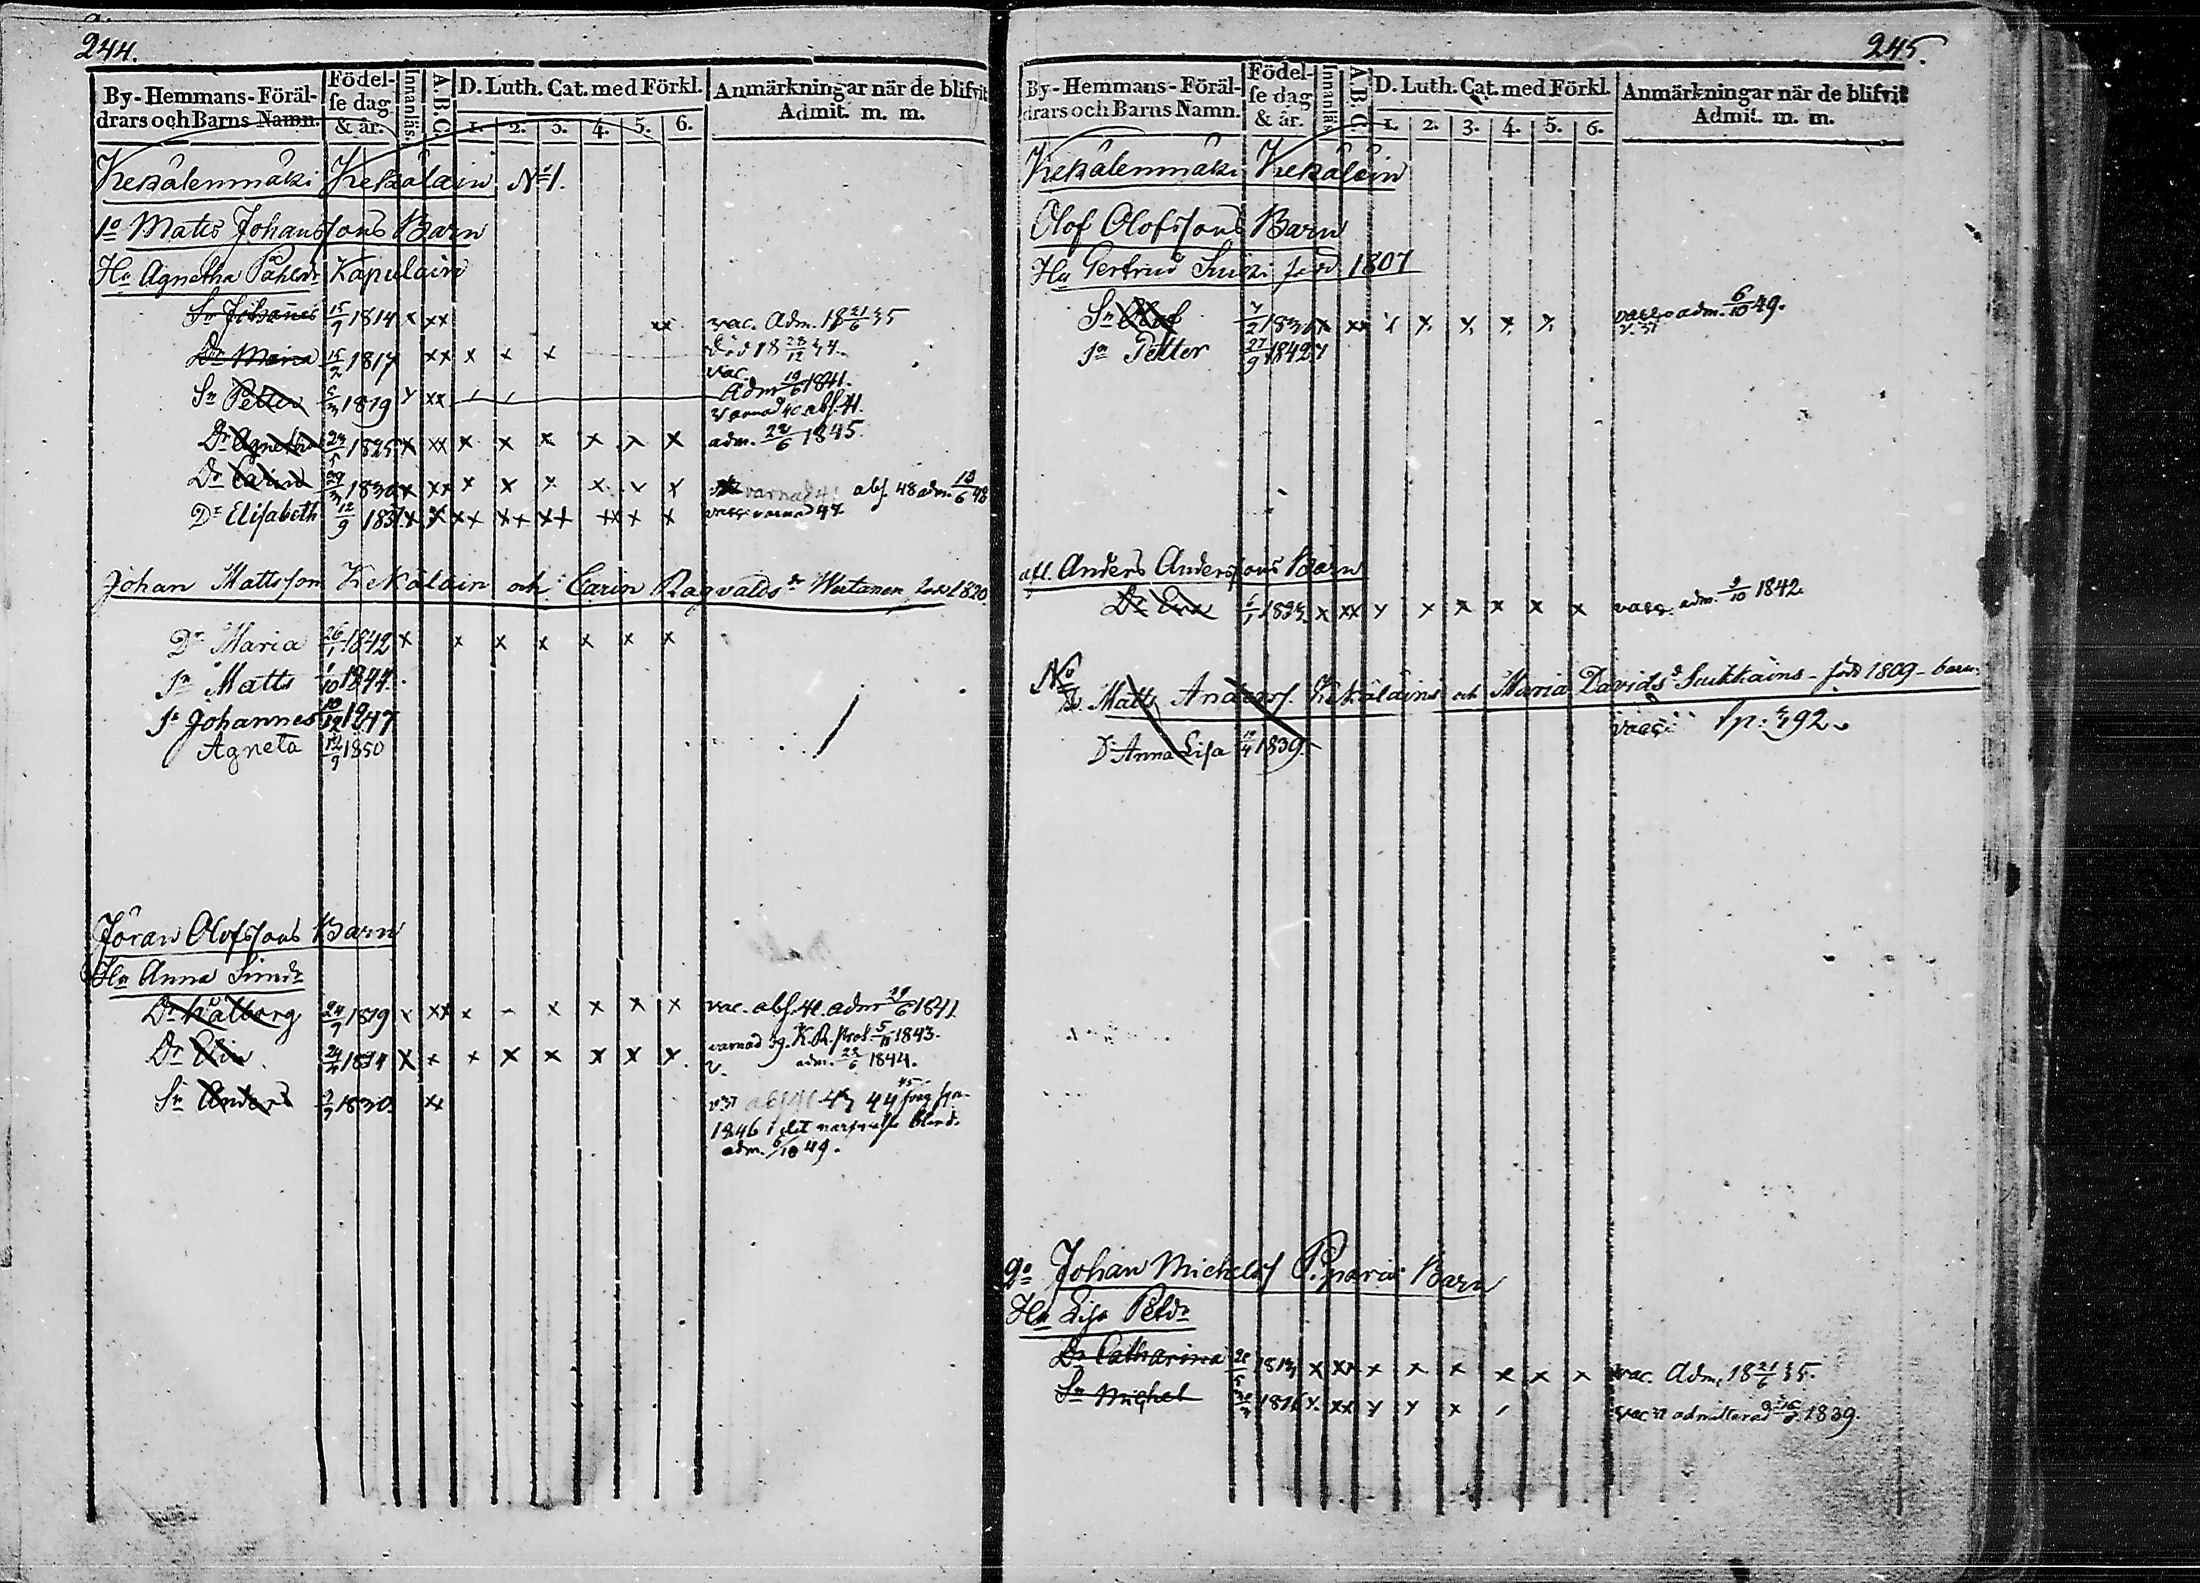 244.
By-Hemmans-Föräl-
drars och Barns Namn.
Födel-
se dag
& år.
Innanläs.
A.B.C.
D. Luth. Cat. med Förkl.
1. 2. 3. 4. 5. 6.
Anmärkningar när de blifvit
Admit. m. m.
Kekälenmäki Kekäläin N:1.
1o Matts Johanssons Barn
Hu Agnetha Påhlsdr Kapulain
Sn Johannes 15/7 1814 x xx xx vac. Adm. 18 21/6 35
Dr Maria 15/2 1817 xx x x x död 18 28/12 34.
vac.
Sn Petter 1819 x xx Adm 19/6 1841.
varnad 40 abs. 41.
Dr Agnetha 24/5 1825 x xx x x x x x x adm. 22/6 1845.
Dr Carin 29/3 1830 x xx x x x x x x varnad abs. 48 adm. 18/6 48
Dr Elisabeth 12/9 183 x x xx xx xx xx x x varnad 47
Johan Mattsson Kekäläin och Carin Ragvaldsdr Wertanen född 1820.
Dr Maria 26/1 1842 x x x x x x x
Sn Matts 1/10 1844.
Sn Johannes 1847
Agneta 12/9 1850
Jöran Olofssons Barn
Hu Anna Simdr
Dr Walborg 24/7 1819 x xx x - x x x x vac. abs. 41. adm 29/6 1841
Dr Elin 1824 x x x x x x x x varnad 39. K. R. Prot 5/11 1843.
v. adm. 22/6 1844.
Sn Anders 1830 xx 43 44 45
1846 i det närmaste blind.
adm. 6/10 49.
245.
By-Hemmans-Föräl-
drars och Barns Namn.
Födel-
se dag
& år.
Innanläs
A.B.C.
D. Luth. Cat. med Förkl.
1. 2. 3. 4. 5. 6.
Anmärkningar när de blifvit
Admit. m. m.
Kekälenmäki Kekäläin
Olof Olofssons Barn
Hu Gertrud född 1807
Sn Olof x xx x x x x x adm. 6/10 49.
Sn Petter 27/9 1842
afl. Anders Anderssons Barn
Dr Eva x xx x x x x x x vacc. adm. 9/10 1842.
No
Matts Anderss. Kekäläins och Maria Davidsdr Suikkains - född 1809 - barn
vacc: Sp: 92.
Dr Anna Lisa 1839.
Johan Michelss Barn
Hu Lisa Petdr
Dr Catharina 1813 x xx x x x x x x vac. Adm. 18 21/6 35.
Sn Michel 1816 x xx x x x vac admitterad 1839.